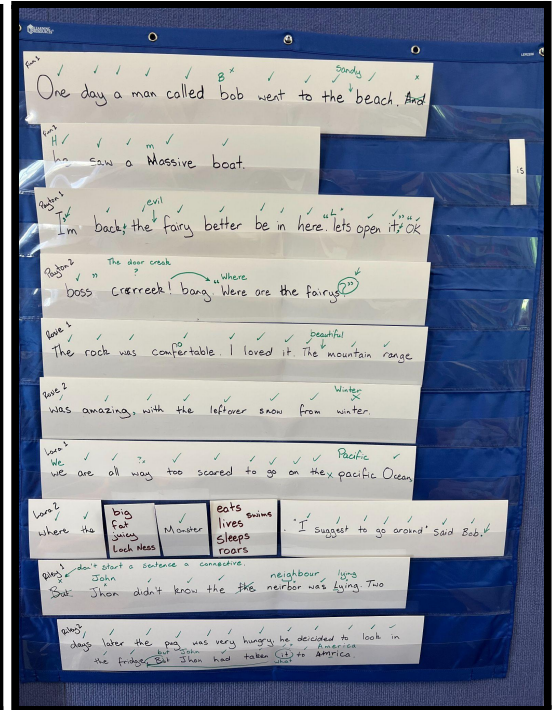 LEARNING RESOURCES
Fun 1
B Sandy
One day a man called bob went to the beach. And
is
H m
he saw a Massive boat.
Payton 1
evil "L
Im back, the fairy better be in here. lets open it," OK
Payton 2
The door creak
? " "Where
boss Crorreek! bang. Were are the fairys?"
Rove 1
o beautiful
The rock was comfertable. I loved it. The mountain range
Rove 2
Winter
was amazing, with the leftover snow from winter.
Lara 1
We ? Pacific
we are all way too scared to go on the pacific Ocean
Lara 2
where the
big
fat
juicy
Loch Ness
Monster
eats swims
lives
sleeps
roars
. "I suggest to go around" said Bob.
Riley 1
don't start a sentence a connective.
John neighbour lying
But Jhon didn't know the the neirbor was Lying. Two
Riley 2
days later the pug was very hungry, he decided to look in
but John America
the fridge, But Jhon had taken it to Amrica
what